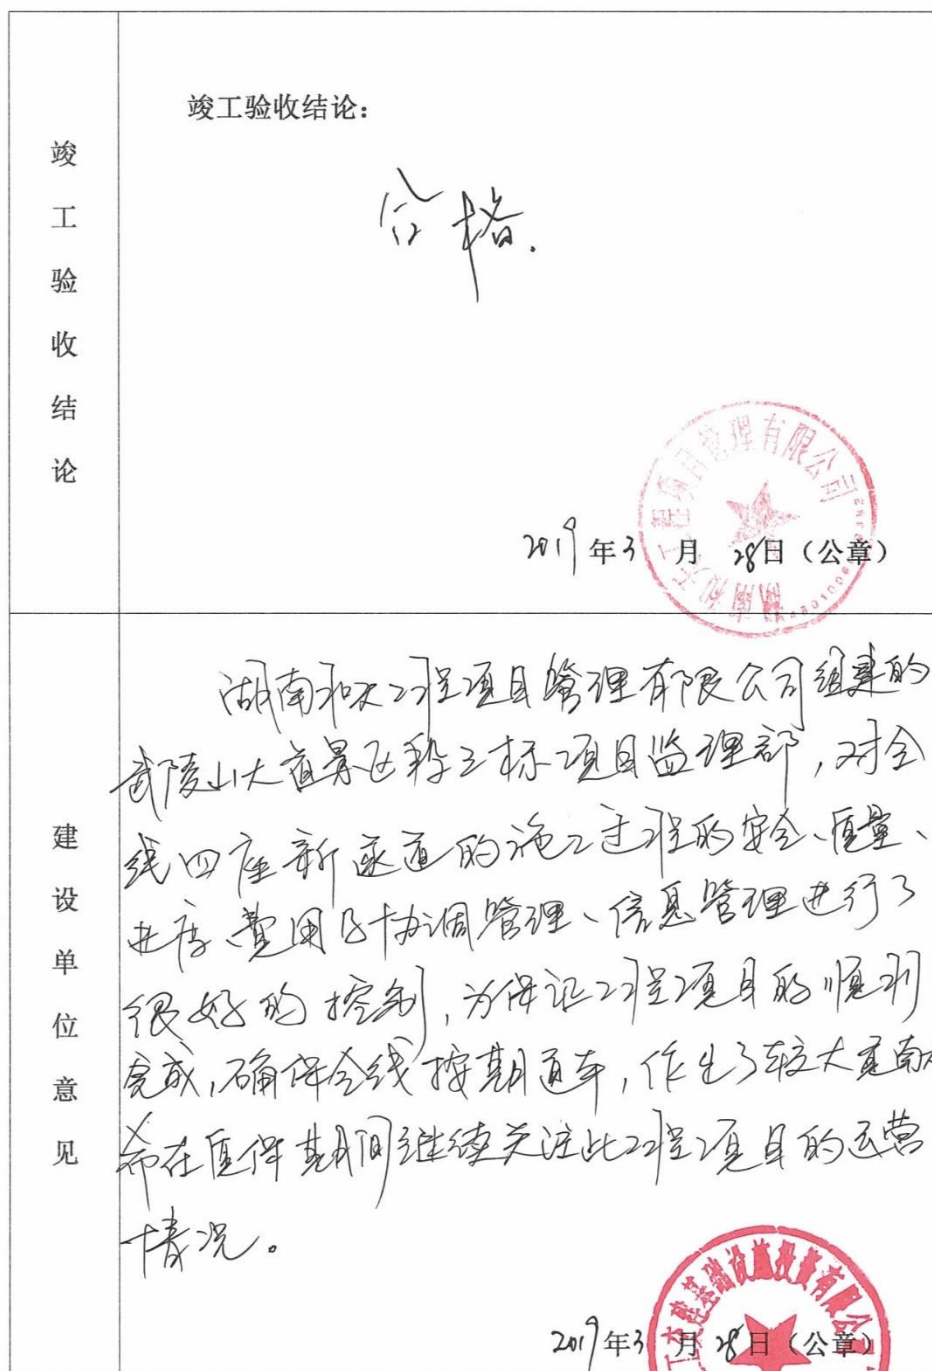 竣工验收结论
竣工验收结论：
合格.
湖南和天工程项目管理有限公司
2019年3月28日（公章）
建设单位意见
湖南和天工程项目管理有限公司组建的
武陵山大道景区段三标项目监理部，对全
线四座新隧道的施工过程的安全、质量、
进度、费用及协调管理、信息管理进行了
很好的控制，为保证工程项目的顺利
完成，确保全线按期通车，作出了较大贡献
希在质保期间继续关注此工程项目的运营
情况。
基础设施投资有限公
2019年3月28日（公章）